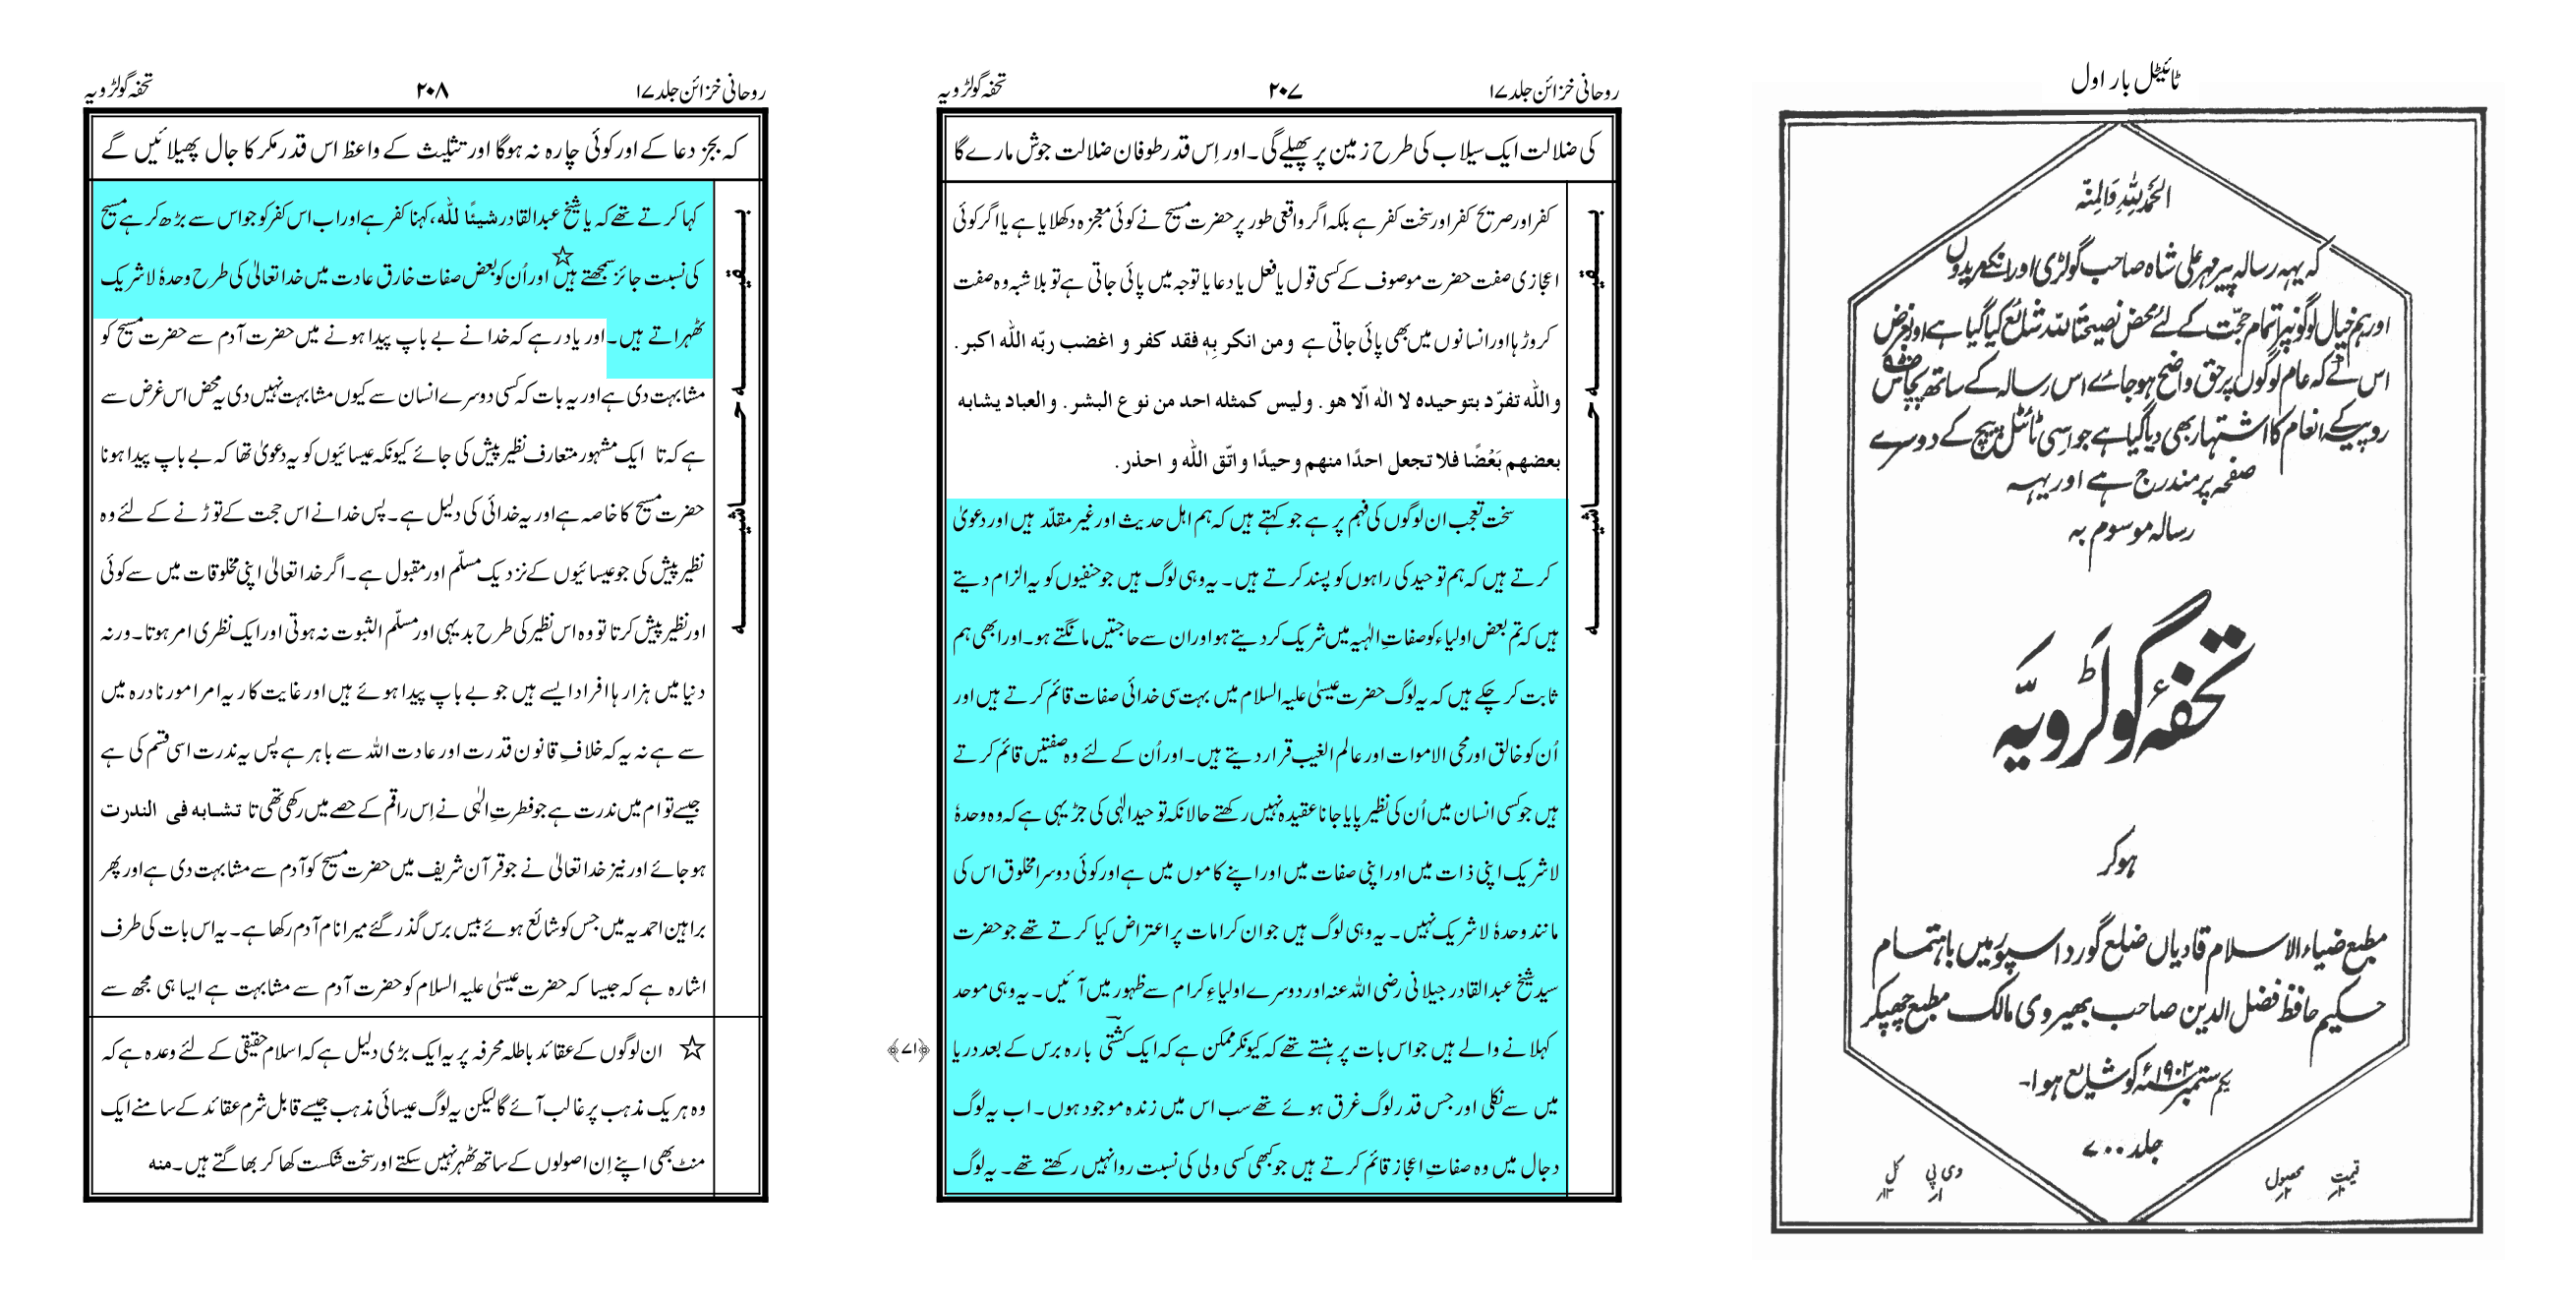 ٹائیٹل بار اول
الحمد للہ والمنّہ
کہ یہہ رسالہ پیر مہر علی شاہ صاحب گولڑی اور انکے مریدوں
اور ہم خیال لوگوں پر اتمام حجت کے لئے محض نصیحتًا للہ شائع کیا گیا ہے اور بغرض
اس کے کہ عام لوگوں پر حق واضح ہو جاۓ اس رسالہ کے ساتھ پچاس
روپیہ کے انعام کا اشتہار بھی دیا گیا ہے جو اسی ٹائٹل پیج کے دوسرے
صفحہ پر مندرج ہے اور یہہ
رسالہ موسوم بہ
تحفۂ گولڑویّہ
ہوکر
مطبع ضیاء الاسلام قادیاں ضلع گورداسپور میں باہتمام
حکیم حافظ فضل الدین صاحب بھیروی مالک مطبع چھپکر
یکم ستمبر ۱۹۰۲ء کو شایع ہوا۔
جلد ۷۰۰
قیمت محصول وی پی کل
روحانی خزائن جلد ۱۷ ۲۰۷ تحفہ گولڑویہ
کی ضلالت ایک سیلاب کی طرح زمین پر پھیلے گی۔ اور اِس قدر طوفان ضلالت جوش مارے گا
بقیہ حاشیہ
کفر اور صریح کفر اور سخت کفر ہے بلکہ اگر واقعی طور پر حضرت مسیح نے کوئی معجزہ دکھلایا ہے یا اگر کوئی
اعجازی صفت حضرت موصوف کے کسی قول یا فعل یا دعا یا توجہ میں پائی جاتی ہے تو بلاشبہ وہ صفت
کروڑہا اور انسانوں میں بھی پائی جاتی ہے ومن انکر بِہٖ فقد کفر و اغضب ربّہ اللّٰہ اکبر.
واللّٰہ تفرّد بتوحیدہ لا الٰہ اّلا ھو. ولیس کمثلہ احد من نوع البشر. والعباد یشابہ
بعضھم بَعْضًا فلا تجعل احدًا منھم وحیدًا واتّق اللّٰہ و احذر.
سخت تعجب ان لوگوں کی فہم پر ہے جو کہتے ہیں کہ ہم اہل حدیث اور غیر مقلّد ہیں اور دعویٰ
کرتے ہیں کہ ہم توحید کی راہوں کو پسند کرتے ہیں۔ یہ وہی لوگ ہیں جو حنفیوں کو یہ الزام دیتے
ہیں کہ تم بعض اولیاء کو صفاتِ الٰہیہ میں شریک کر دیتے ہو اور ان سے حاجتیں مانگتے ہو۔ اور ابھی ہم
ثابت کر چکے ہیں کہ یہ لوگ حضرت عیسیٰ علیہ السلام میں بہت سی خدائی صفات قائم کرتے ہیں اور
اُن کو خالق اور محی الاموات اور عالم الغیب قرار دیتے ہیں۔ اور اُن کے لئے وہ صفتیں قائم کرتے
ہیں جو کسی انسان میں اُن کی نظیر پایا جانا عقیدہ نہیں رکھتے حالانکہ توحید الٰہی کی جڑ یہی ہے کہ وہ وحدہٗ
لا شریک اپنی ذات میں اور اپنی صفات میں اور اپنے کاموں میں ہے اور کوئی دوسرا مخلوق اس کی
مانند وحدہٗ لا شریک نہیں۔ یہ وہی لوگ ہیں جو ان کرامات پر اعتراض کیا کرتے تھے جو حضرت
سید شیخ عبدالقادر جیلانی رضی اللہ عنہ اور دوسرے اولیاءِ کرام سے ظہور میں آئیں۔ یہ وہی موحد
کہلانے والے ہیں جو اس بات پر ہنستے تھے کہ کیونکر ممکن ہے کہ ایک کشتی بارہ برس کے بعد دریا
﴿۷۱﴾
میں سے نکلی اور جس قدر لوگ غرق ہوئے تھے سب اس میں زندہ موجود ہوں۔ اب یہ لوگ
دجال میں وہ صفاتِ اعجاز قائم کرتے ہیں جو کبھی کسی ولی کی نسبت روا نہیں رکھتے تھے۔ یہ لوگ
روحانی خزائن جلد ۱۷ ۲۰۸ تحفہ گولڑویہ
کہ بجز دعا کے اور کوئی چارہ نہ ہوگا اور تثلیث کے واعظ اس قدر مکر کا جال پھیلائیں گے
بقیہ حاشیہ
کہا کرتے تھے کہ یا شیخ عبدالقادر شیئًا للّٰہ، کہنا کفر ہے اور اب اس کفر کو جو اس سے بڑھ کر ہے مسیح
کی نسبت جائز سمجھتے ہیں☆ اور اُن کو بعض صفات خارق عادت میں خدا تعالیٰ کی طرح وحدہٗ لاشریک
ٹھہراتے ہیں۔ اور یاد رہے کہ خدا نے بے باپ پیدا ہونے میں حضرت آدم سے حضرت مسیح کو
مشابہت دی ہے اور یہ بات کہ کسی دوسرے انسان سے کیوں مشابہت نہیں دی یہ محض اس غرض سے
ہے کہ تا ایک مشہور متعارف نظیر پیش کی جائے کیونکہ عیسائیوں کو یہ دعویٰ تھا کہ بے باپ پیدا ہونا
حضرت مسیح کا خاصہ ہے اور یہ خدائی کی دلیل ہے۔ پس خدا نے اس حجت کے توڑنے کے لئے وہ
نظیر پیش کی جو عیسائیوں کے نزدیک مسلّم اور مقبول ہے۔ اگر خدا تعالیٰ اپنی مخلوقات میں سے کوئی
اور نظیر پیش کرتا تو وہ اس نظیر کی طرح بدیہی اور مسلّم الثبوت نہ ہوتی اور ایک نظری امر ہوتا۔ ورنہ
دنیا میں ہزارہا افراد ایسے ہیں جو بے باپ پیدا ہوئے ہیں اور غایت کار یہ امر امور نادرہ میں
سے ہے نہ یہ کہ خلافِ قانون قدرت اور عادت اللہ سے باہر ہے پس یہ ندرت اسی قسم کی ہے
جیسے توام میں ندرت ہے جو فطرتِ الٰہی نے اِس راقم کے حصے میں رکھی تھی تا تشابہ فی الندرت
ہو جائے اور نیز خدا تعالیٰ نے جو قرآن شریف میں حضرت مسیح کو آدم سے مشابہت دی ہے اور پھر
براہین احمدیہ میں جس کو شائع ہوئے بیس برس گذر گئے میرا نام آدم رکھا ہے۔ یہ اس بات کی طرف
اشارہ ہے کہ جیسا کہ حضرت عیسیٰ علیہ السلام کو حضرت آدم سے مشابہت ہے ایسا ہی مجھ سے
☆ ان لوگوں کے عقائد باطلہ محرفہ پر یہ ایک بڑی دلیل ہے کہ اسلام حقیقی کے لئے وعدہ ہے کہ
وہ ہر یک مذہب پر غالب آئے گا لیکن یہ لوگ عیسائی مذہب جیسے قابل شرم عقائد کے سامنے ایک
منٹ بھی اپنے اِن اصولوں کے ساتھ ٹھہر نہیں سکتے اور سخت شکست کھا کر بھاگتے ہیں۔ منہ